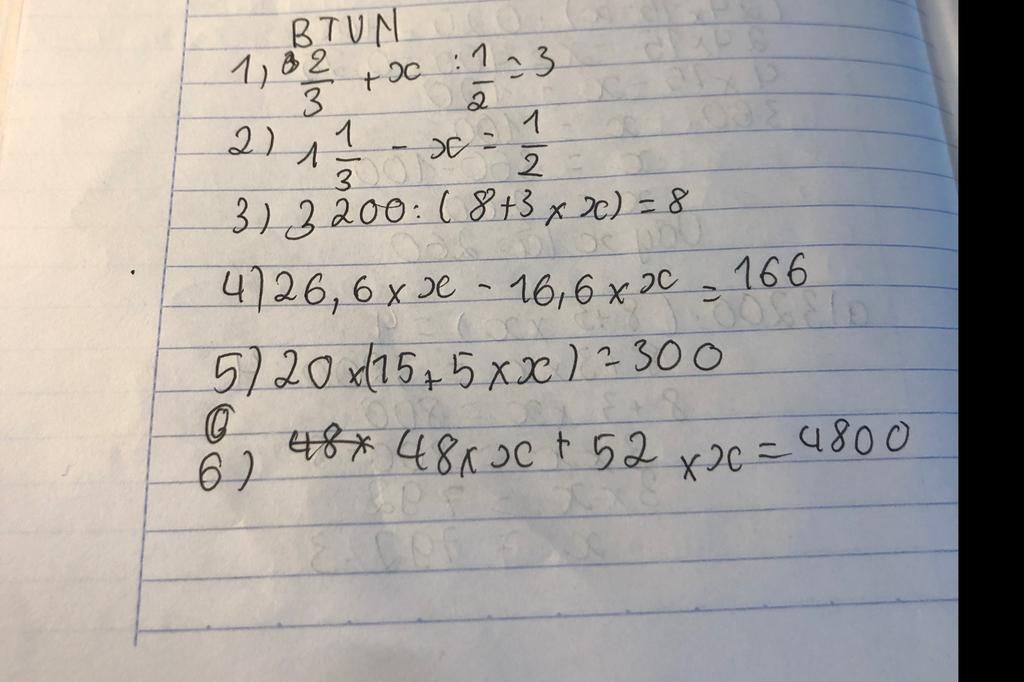 BTVN
1, 2/3 + x : 1/2 = 3
2) 1 1/3 - x = 1/2
3) 3200 : ( 8+3 x x ) = 8
4) 26,6 x x - 16,6 x x = 166
5) 20 x (15 + 5 x x ) = 300
6) 48 x x + 52 x x = 4800